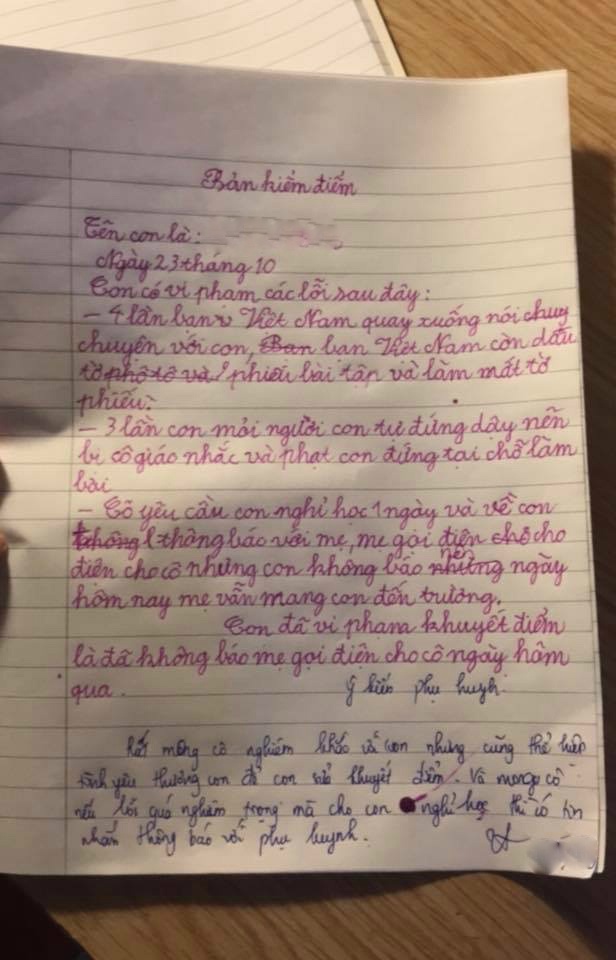 Bản kiểm điểm
Tên con là:
Ngày 23 tháng 10
Con có vi phạm các lỗi sau đây:
– 4 lần bạn Việt Nam quay xuống nói chuy
chuyện với con, Bạn bạn Việt Nam còn dấu
tờ phô tô và phiếu bài tập và làm mất tờ
phiếu.
– 3 lần con mỏi người con tự đứng dậy nên
bị cô giáo nhắc và phạt con đứng tại chỗ làm
bài
– Cô yêu cầu con nghỉ học 1 ngày và về con
không thông báo với mẹ, mẹ gọi điện chô cho
điện cho cô nhưng con không báo những nên ngày
hôm nay mẹ vẫn mang con đến trường.
Con đã vi phạm khuyết điểm
là đã không báo mẹ gọi điện cho cô ngày hôm
qua.
Ý kiến phụ huynh.
Rất mong cô nghiêm khắc với con nhưng cũng thể hiện
tình yêu thương con để con sửa khuyết điểm. Và mong cô
nếu lỗi quá nghiêm trọng mà cho con nghỉ học thì có tin
nhắn thông báo với phụ huynh.